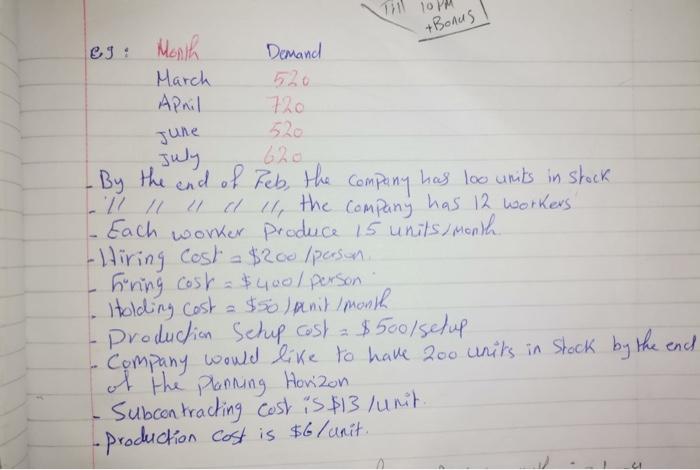 Till 10 PM
+Bonus
eg: Month Demand
March 520
April 720
June 520
July 620
- By the end of Feb, the company has 100 units in stock
- 11 11 11 11 11, the company has 12 workers
- Each worker Produce 15 units/month.
- Hiring cost = $200/person.
- firing cost = $400/person
- Holding cost = $50/unit/month
- Production Setup cost = $500/setup
- Company would like to have 200 units in Stock by the end
of the planning Horizon
- Subcontracting cost is $13/unit.
- production cost is $6/unit.